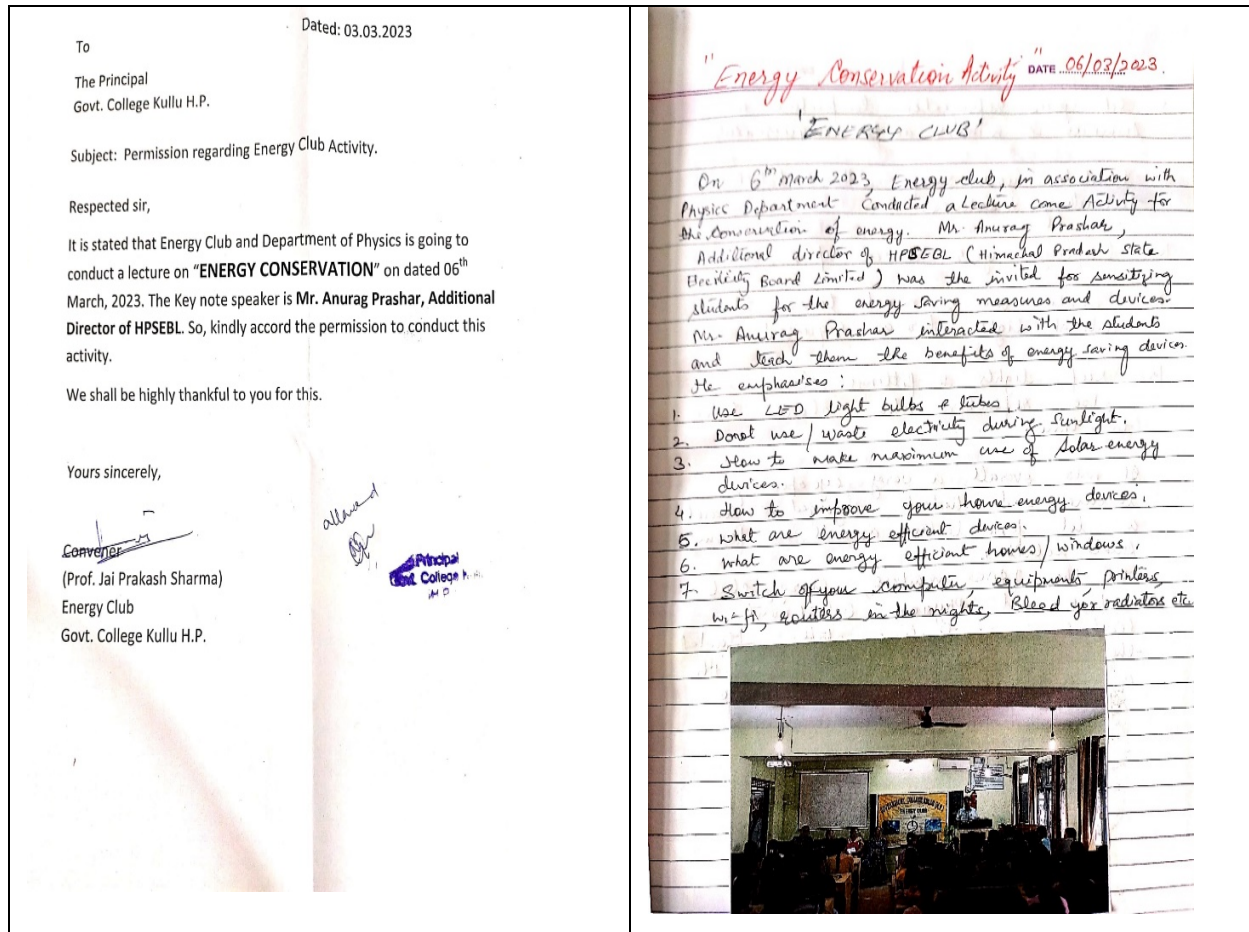 Dated: 03.03.2023
To
The Principal
Govt. College Kullu H.P.
Subject: Permission regarding Energy Club Activity.
Respected sir,
It is stated that Energy Club and Department of Physics is going to
conduct a lecture on "ENERGY CONSERVATION" on dated 06th
March, 2023. The Key note speaker is Mr. Anurag Prashar, Additional
Director of HPSEBL. So, kindly accord the permission to conduct this
activity.
We shall be highly thankful to you for this.
Yours sincerely,
Convener
(Prof. Jai Prakash Sharma)
Energy Club
Govt. College Kullu H.P.
allowed
Principal
Govt. College
"Energy Conservation Activity" DATE 06/03/2023
'ENERGY CLUB'
On 6th March 2023, Energy club, in association with
Physics Department Conducted a Lecture come Activity for
the Conservation of energy. Mr. Anurag Prashar,
Additional director of HPSEBL (Himachal Pradesh State
Electricity Board Limited) was the invited for sensitizing
students for the energy saving measures and devices.
Mr. Anurag Prashar interacted with the students
and teach them the benefits of energy saving devices.
He emphasises:
1. Use LED light bulbs & tubes
2. Donot use/waste electricity during sunlight.
3. How to make maximum use of Solar energy
devices.
4. How to improve your home energy devices.
5. What are energy efficient devices.
6. What are energy efficient homes/windows.
7. Switch off your computer, equipments, printers,
wi-fi, routers in the nights, Bleed yor radiators etc
ENERGY CLUB